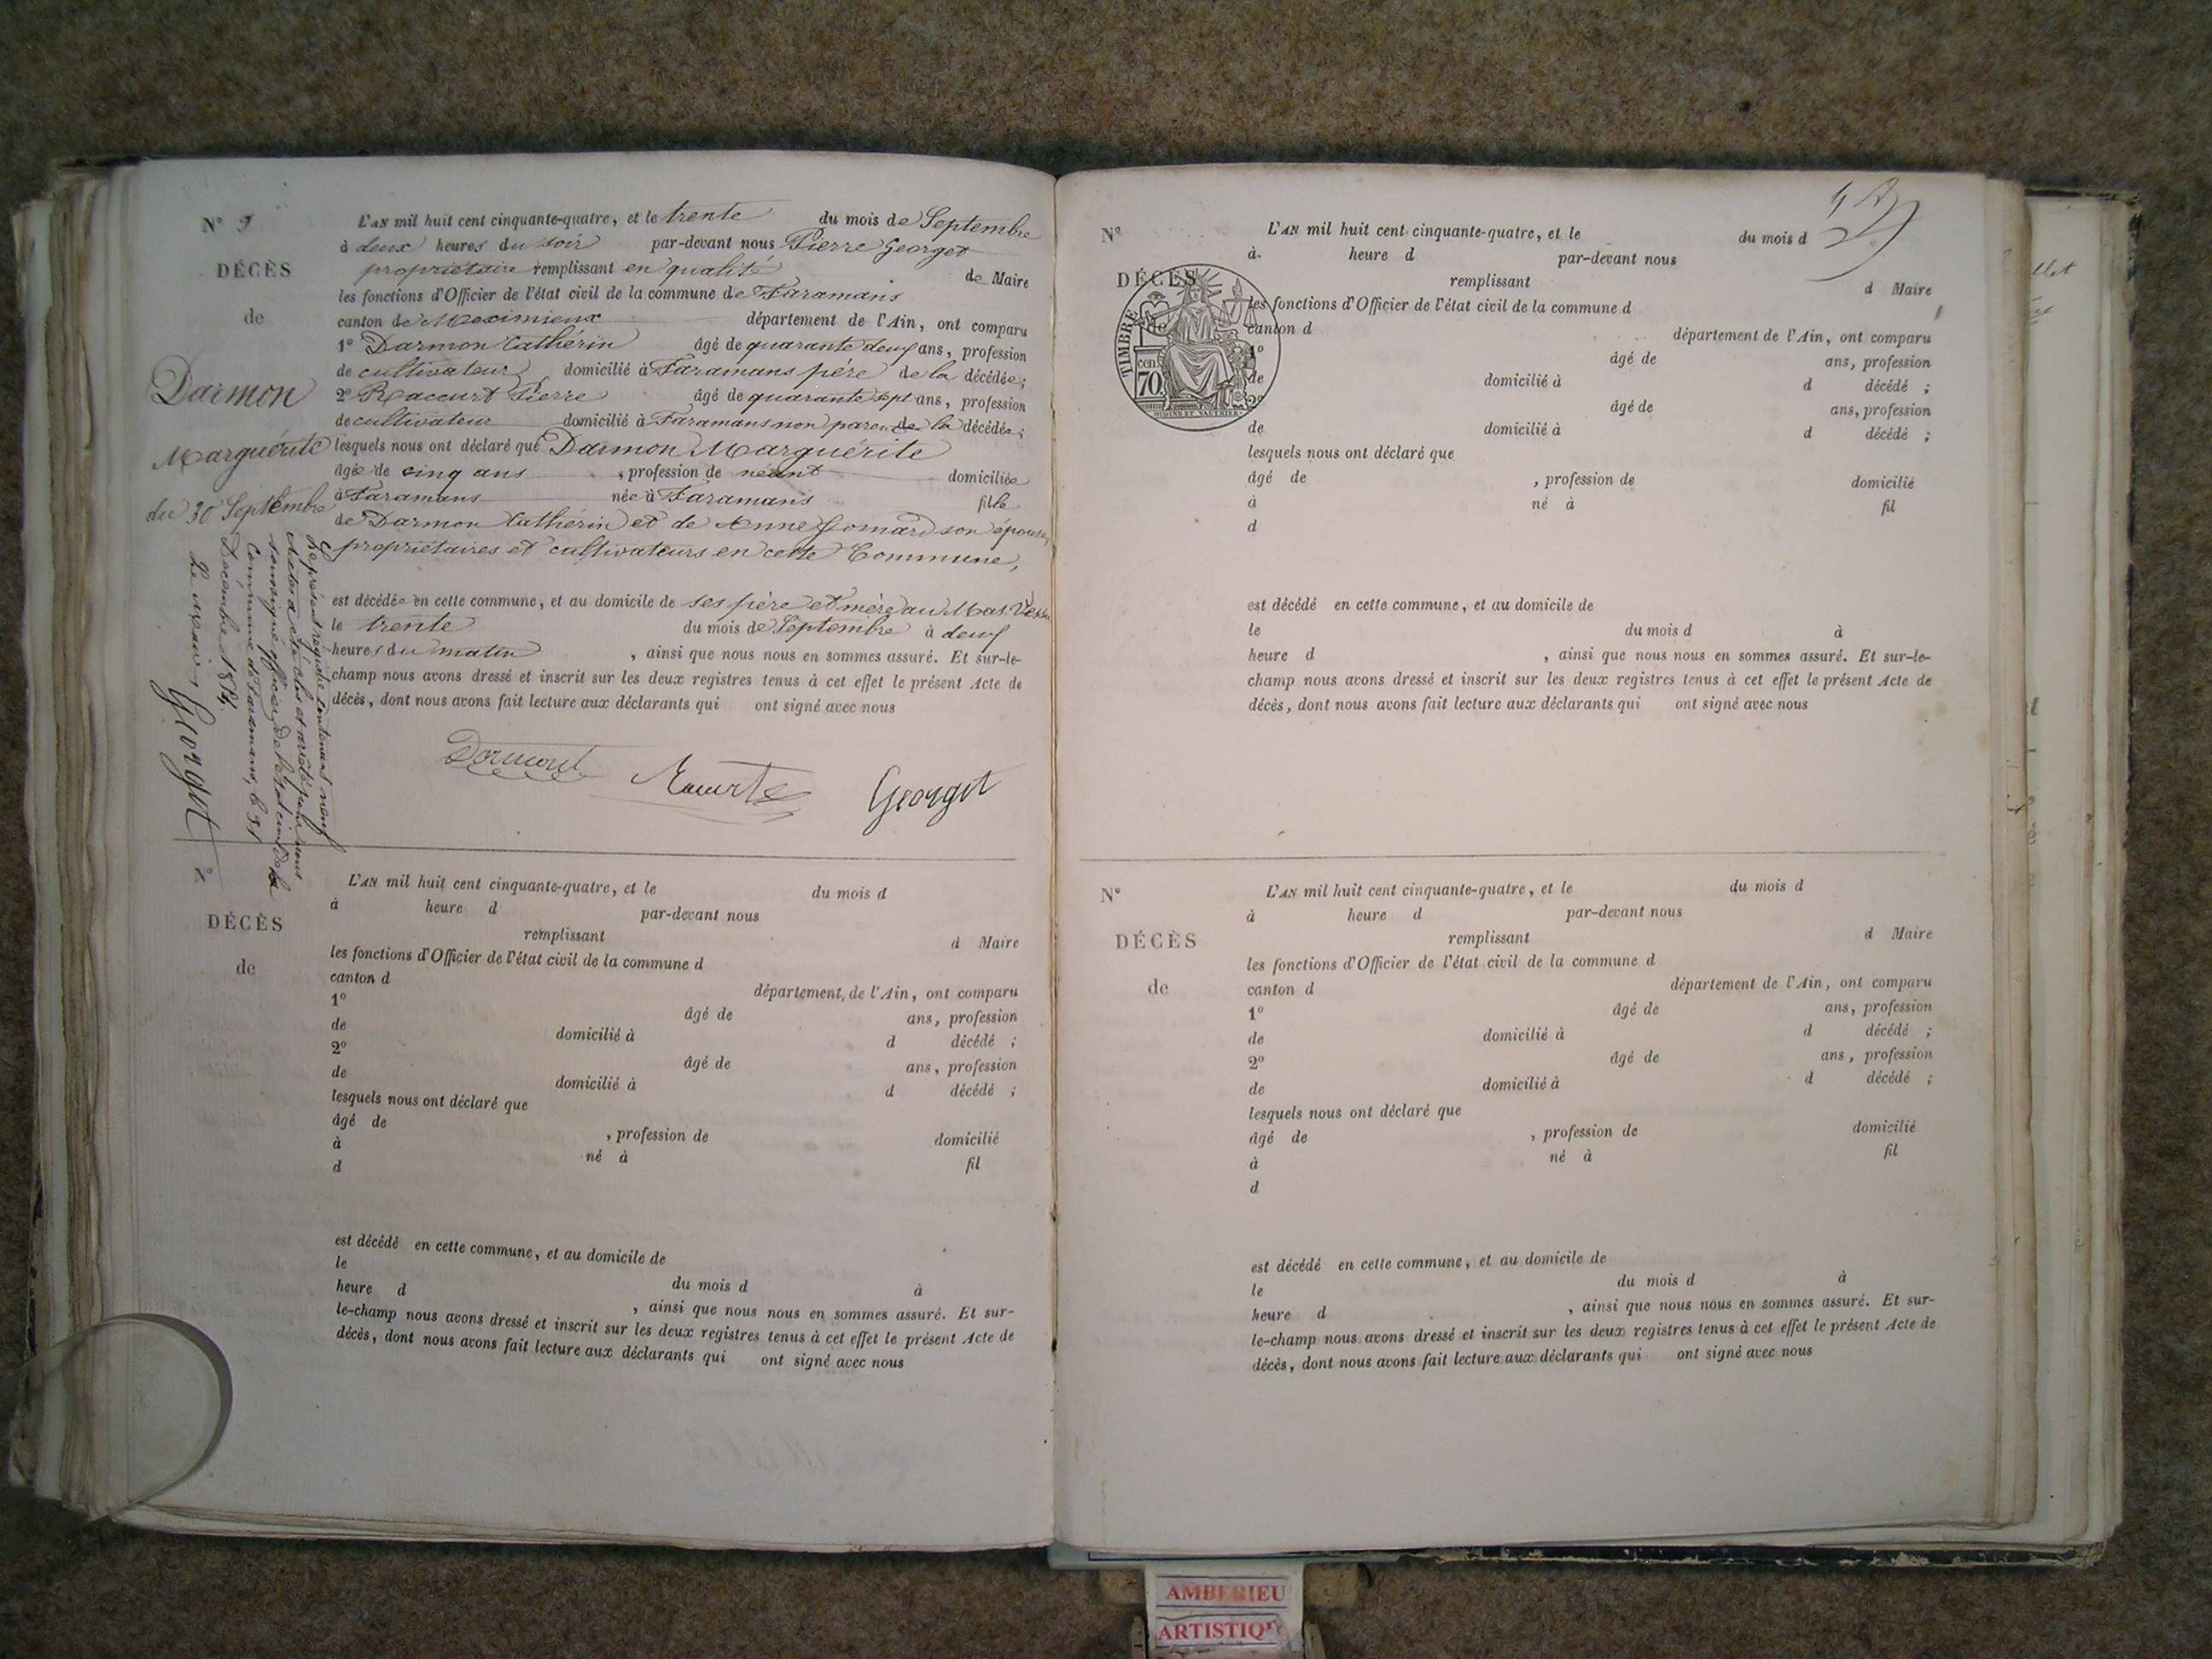 N° 9
DÉCÈS
de
Darmon
Marguérite
du 30 Septembre
L'AN mil huit cent cinquante-quatre, et le trente du mois de Septembre
à deux heures du soir par-devant nous Pierre Georget
propriétaire remplissant en qualité de Maire
les fonctions d'Officier de l'état civil de la commune de Faramans
canton de Meximieux département de l'Ain, ont comparu
1° Darmon Cathérin âgé de quarante deux ans, profession
de cultivateur domicilié à Faramans père de la décédée;
2° Raccurt Pierre âgé de quarante sept ans, profession
de cultivateur domicilié à Faramans non parent de la décédée;
lesquels nous ont déclaré que Darmon Marguérite
âgée de cinq ans, profession de néant domiciliée
à Faramans née à Faramans fille
de Darmon Cathérin et de Anne Gomard son épouse,
propriétaires et cultivateurs en cette Commune,
est décédée en cette commune, et au domicile de ses père et mère au Mas
le trente du mois de Septembre à deux
heures du matin, ainsi que nous nous en sommes assuré. Et sur-le-
champ nous avons dressé et inscrit sur les deux registres tenus à cet effet le présent Acte de
décès, dont nous avons fait lecture aux déclarants qui ont signé avec nous
Georget
Le présent régistre contenant neuf
Actes a été clos et arrêté par nous
soussigné officier de l'état civil de la
Commune de Faramans, le 31
Décembre 1854.
Le Maire, Georget
N°
DÉCÈS
de
L'AN mil huit cent cinquante-quatre, et le du mois d
à heure d par-devant nous
remplissant d Maire
les fonctions d'Officier de l'état civil de la commune d
canton d département de l'Ain, ont comparu
1° âgé de ans, profession
de domicilié à d décédé ;
2° âgé de ans, profession
de domicilié à d décédé ;
lesquels nous ont déclaré que
âgé de , profession de domicilié
à né à fil
d
est décédé en cette commune, et au domicile de
le du mois d à
heure d , ainsi que nous nous en sommes assuré. Et sur-
le-champ nous avons dressé et inscrit sur les deux registres tenus à cet effet le présent Acte de
décès, dont nous avons fait lecture aux déclarants qui ont signé avec nous
N°
DÉCÈS
de
TIMBRE
70 cen.
L'AN mil huit cent cinquante-quatre, et le du mois d
à heure d par-devant nous
remplissant d Maire
les fonctions d'Officier de l'état civil de la commune d
canton d département de l'Ain, ont comparu
1° âgé de ans, profession
de domicilié à d décédé ;
2° âgé de ans, profession
de domicilié à d décédé ;
lesquels nous ont déclaré que
âgé de , profession de domicilié
à né à fil
d
est décédé en cette commune, et au domicile de
le du mois d à
heure d , ainsi que nous nous en sommes assuré. Et sur-le-
champ nous avons dressé et inscrit sur les deux registres tenus à cet effet le présent Acte de
décès, dont nous avons fait lecture aux déclarants qui ont signé avec nous
N°
DÉCÈS
de
L'AN mil huit cent cinquante-quatre, et le du mois d
à heure d par-devant nous
remplissant d Maire
les fonctions d'Officier de l'état civil de la commune d
canton d département de l'Ain, ont comparu
1° âgé de ans, profession
de domicilié à d décédé ;
2° âgé de ans, profession
de domicilié à d décédé ;
lesquels nous ont déclaré que
âgé de , profession de domicilié
à né à fil
d
est décédé en cette commune, et au domicile de
le du mois d à
heure d , ainsi que nous nous en sommes assuré. Et sur-
le-champ nous avons dressé et inscrit sur les deux registres tenus à cet effet le présent Acte de
décès, dont nous avons fait lecture aux déclarants qui ont signé avec nous
AMBERIEU
ARTISTIQ